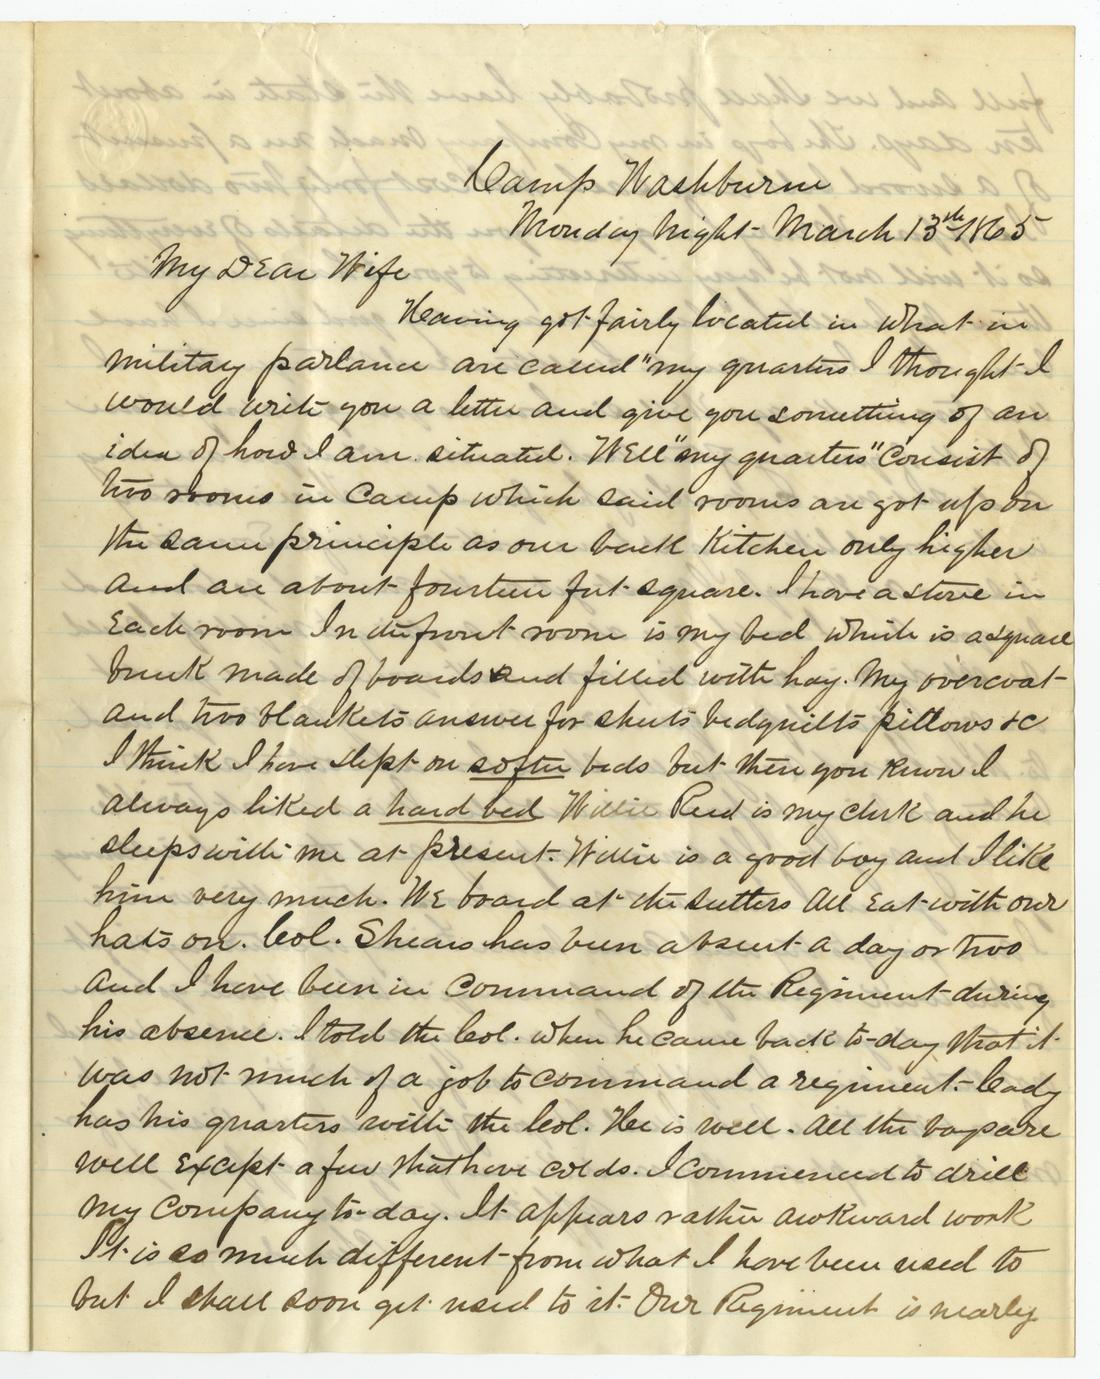 Camp Washburne
Monday night- March 13th 1865
My DEar Wife
Having got fairly located in what in
military parlance are called "my quarters I thought I
would write you a letter and give you something of an
idea of how I am situated. WEll "my quarters" Consist of
two rooms in Camp which said rooms are got up on
the same principle as our back Kitchen only higher
and are about fourteen feet square. I have a stove in
Each room In the front room is my bed which is a square
bunk made of boards and filled with hay. My overcoat
and two blankets answer for sheets bedquilts pillows &c
I think I have slept on softer beds but then you know I
always liked a hard bed Willie Reed is my clerk and he
sleeps with me at present. Willie is a good boy and I like
him very much. We board at the sutlers All Eat with our
hats on. Col. Shears has been absent a day or two
and I have been in Command of the Regiment during
his absence. I told the Col. when he came back to-day that it
was not much of a job to command a regiment. Cady
has his quarters with the Col. He is well. All the boys are
well Except a few that have colds. I Commenced to drill
my Company to-day. It appears rather awkward work
It is so much different from what I have been used to
but I shall soon get used to it. Our Regiment is nearly